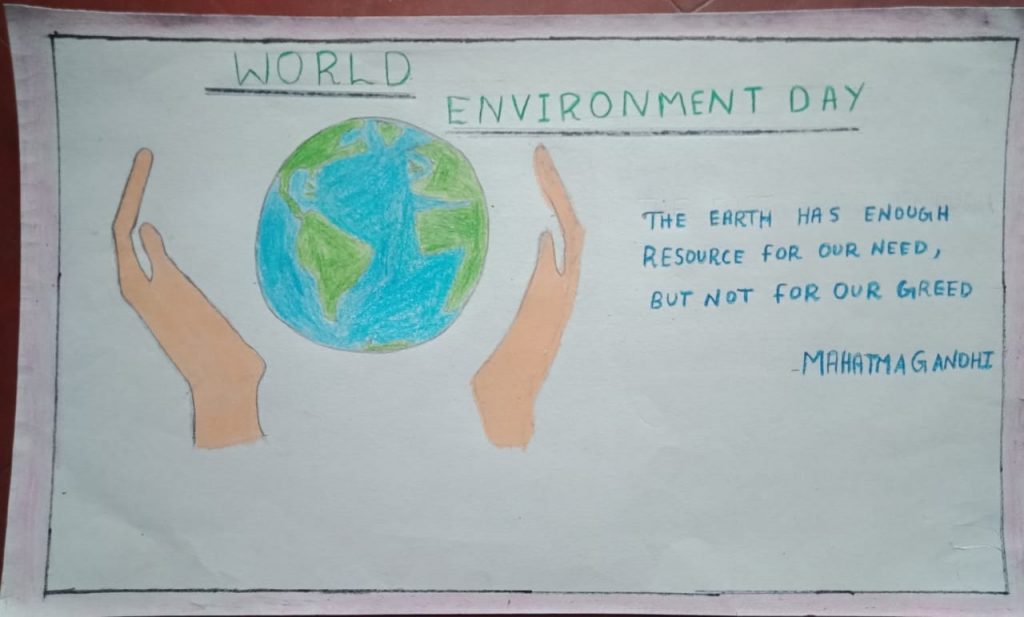 WORLD
ENVIRONMENT DAY
THE EARTH HAS ENOUGH
RESOURCE FOR OUR NEED,
BUT NOT FOR OUR GREED
-MAHATMA GANDHI